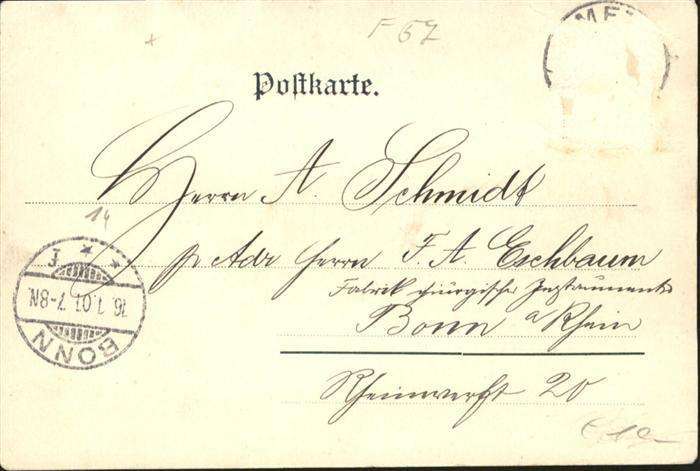 F 67
ME
Postkarte.
Herrn A. Schmidt
14
p Adr Herrn F. A. Eschbaum
Fabrik chirurgischer Instrumente
Bonn a/Rhein
Rheinwerft 20
BONN
16.1.01 7-8N
* * f